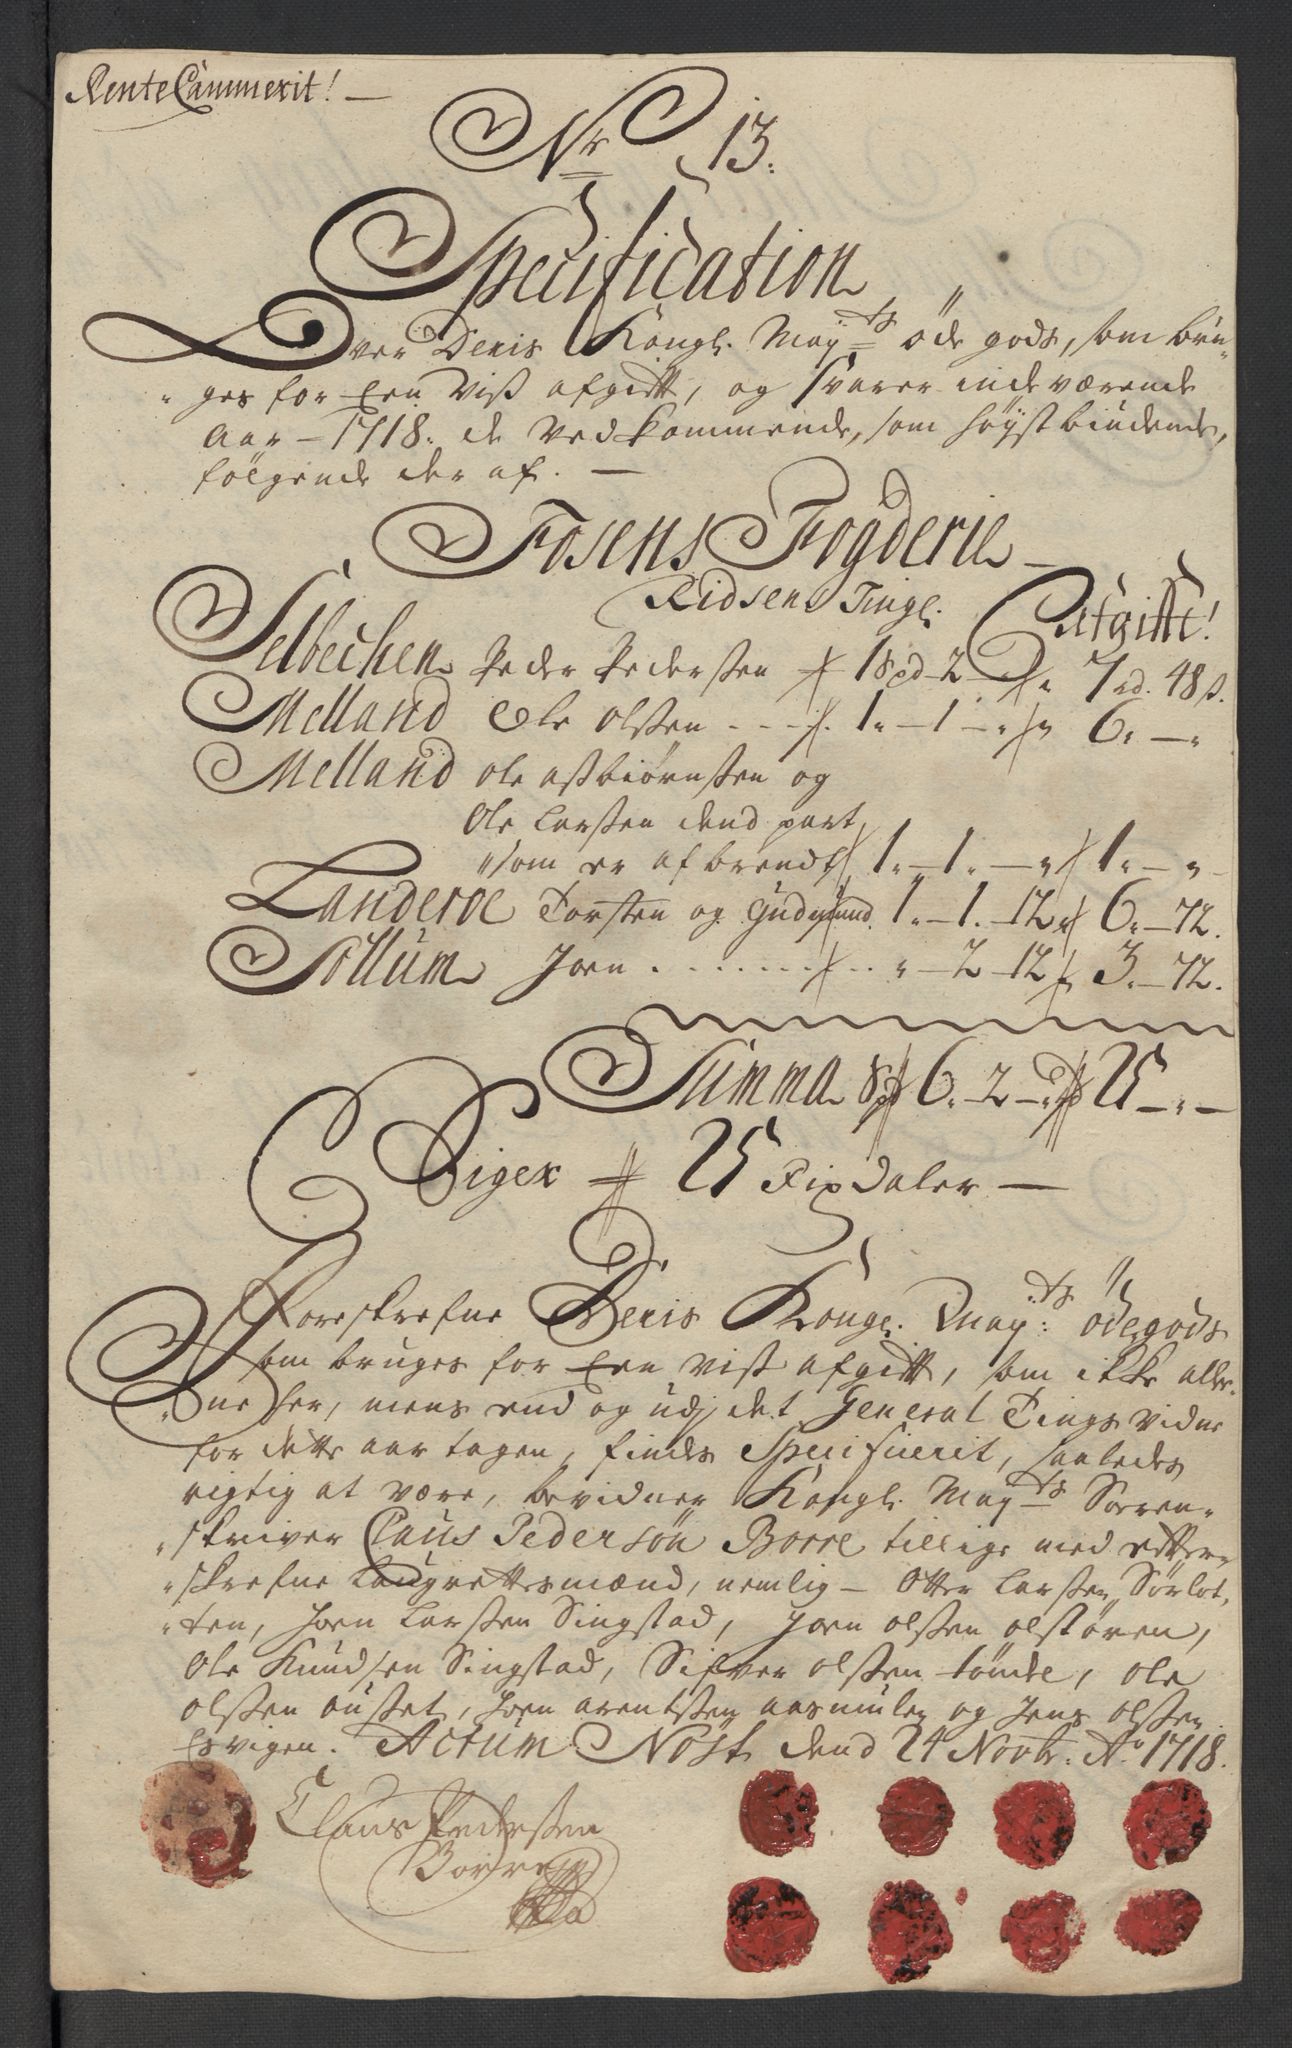 RenteCammerit! —
Nr 13.
Specification
Over Deris Kongl. Mayts öde gods, som bru-
ges for Een viss afgift, og svarer indeværende
Aar - 1718. de Vedkommende, som höystbiudende,
fölgende der af. —
Fosens Fogderie —
Ridsen Tingl. Afgift!
Selbechen Peder Pedersen 1 spd 2 " 7 rd. 48 s.
Melland Ole Olssen - - - 1. - 1 - " 6. - "
Melland ole assbiørnssen og
Ole Larssen dend part
som er afbrendt 1. - 1. - " 1. - "
Landeroe Torsten og Gudmund. 1. - 1. 12 6. - 72.
Sollum Joen . . . . . . . " - 2 - 12 3. - 72.
Summa Spd 6. 2 - " rd 25 - " -
Siger 25 Rixdaler —
Foreskrefne Deris Kongl. Mayts: ödegods
som bruges for Een viss afgift, som ikke alle-
ne her, mens end og udj det General Tings vidne
for dette aar tagen, findes Specificerit, saaledes
rigtig at være, bevidner Kongl. Mayts Sorren-
skriver Claus Pedersön Borre tillige med efter-
skrefne Laugrettesmænd, nemlig - Otter Larssen Sørlot-
ten, Joen Larssen Singstad, Joen olssen olstøren,
Ole Knudsen Singstad, Sifver olssen tömde, ole
olssen ousset, Joen arentssen aasmulen og Jens olssen
Esvigen. Actum Nöst dend 24 Novbr. Ao 1718.
Claus Pederssen
Borre